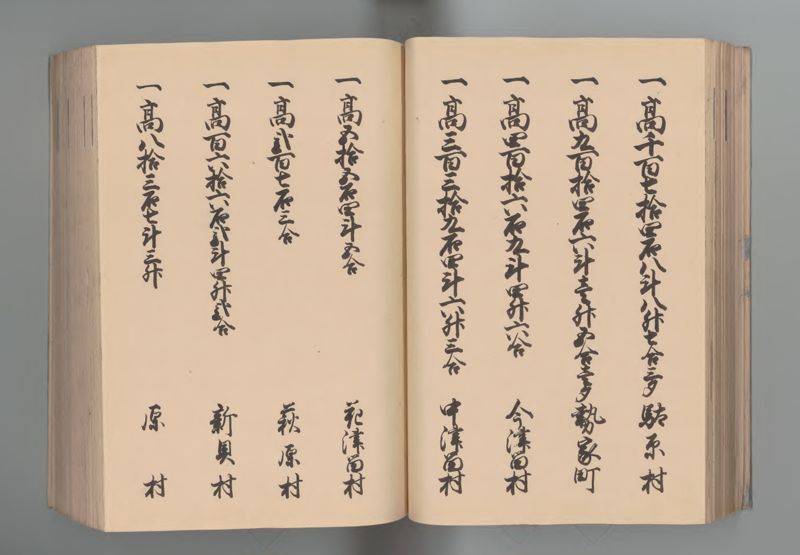 一高千百七拾四石八斗八升七合三夕 駄原村
一高九百拾四石六斗壱升五合壱夕 勢家町
一高四百拾六石九斗四升六合 今津留村
一高三百三拾九石四斗六升三合 中津留村
一高五拾五石四斗五合 花津留村
一高弐百七石三合 萩原村
一高百六拾六石弐斗四升弐合 新貝村
一高八拾三石七斗三升 原村